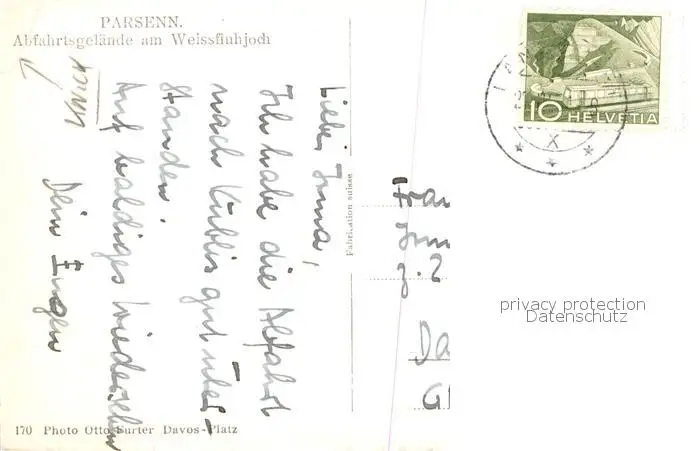 PARSENN.
Abfahrtsgelände am Weissfluhjoch
Liebe Irma,
Ich habe die Abfahrt
nach Küblis gut über-
standen.
Auf baldiges Wiedersehen
Dein Eugen
170 Photo Otto Furter Davos-Platz
Fabrication suisse
10 HELVETIA
X
Frau
z. Z
Da
Gl
privacy protection
Datenschutz